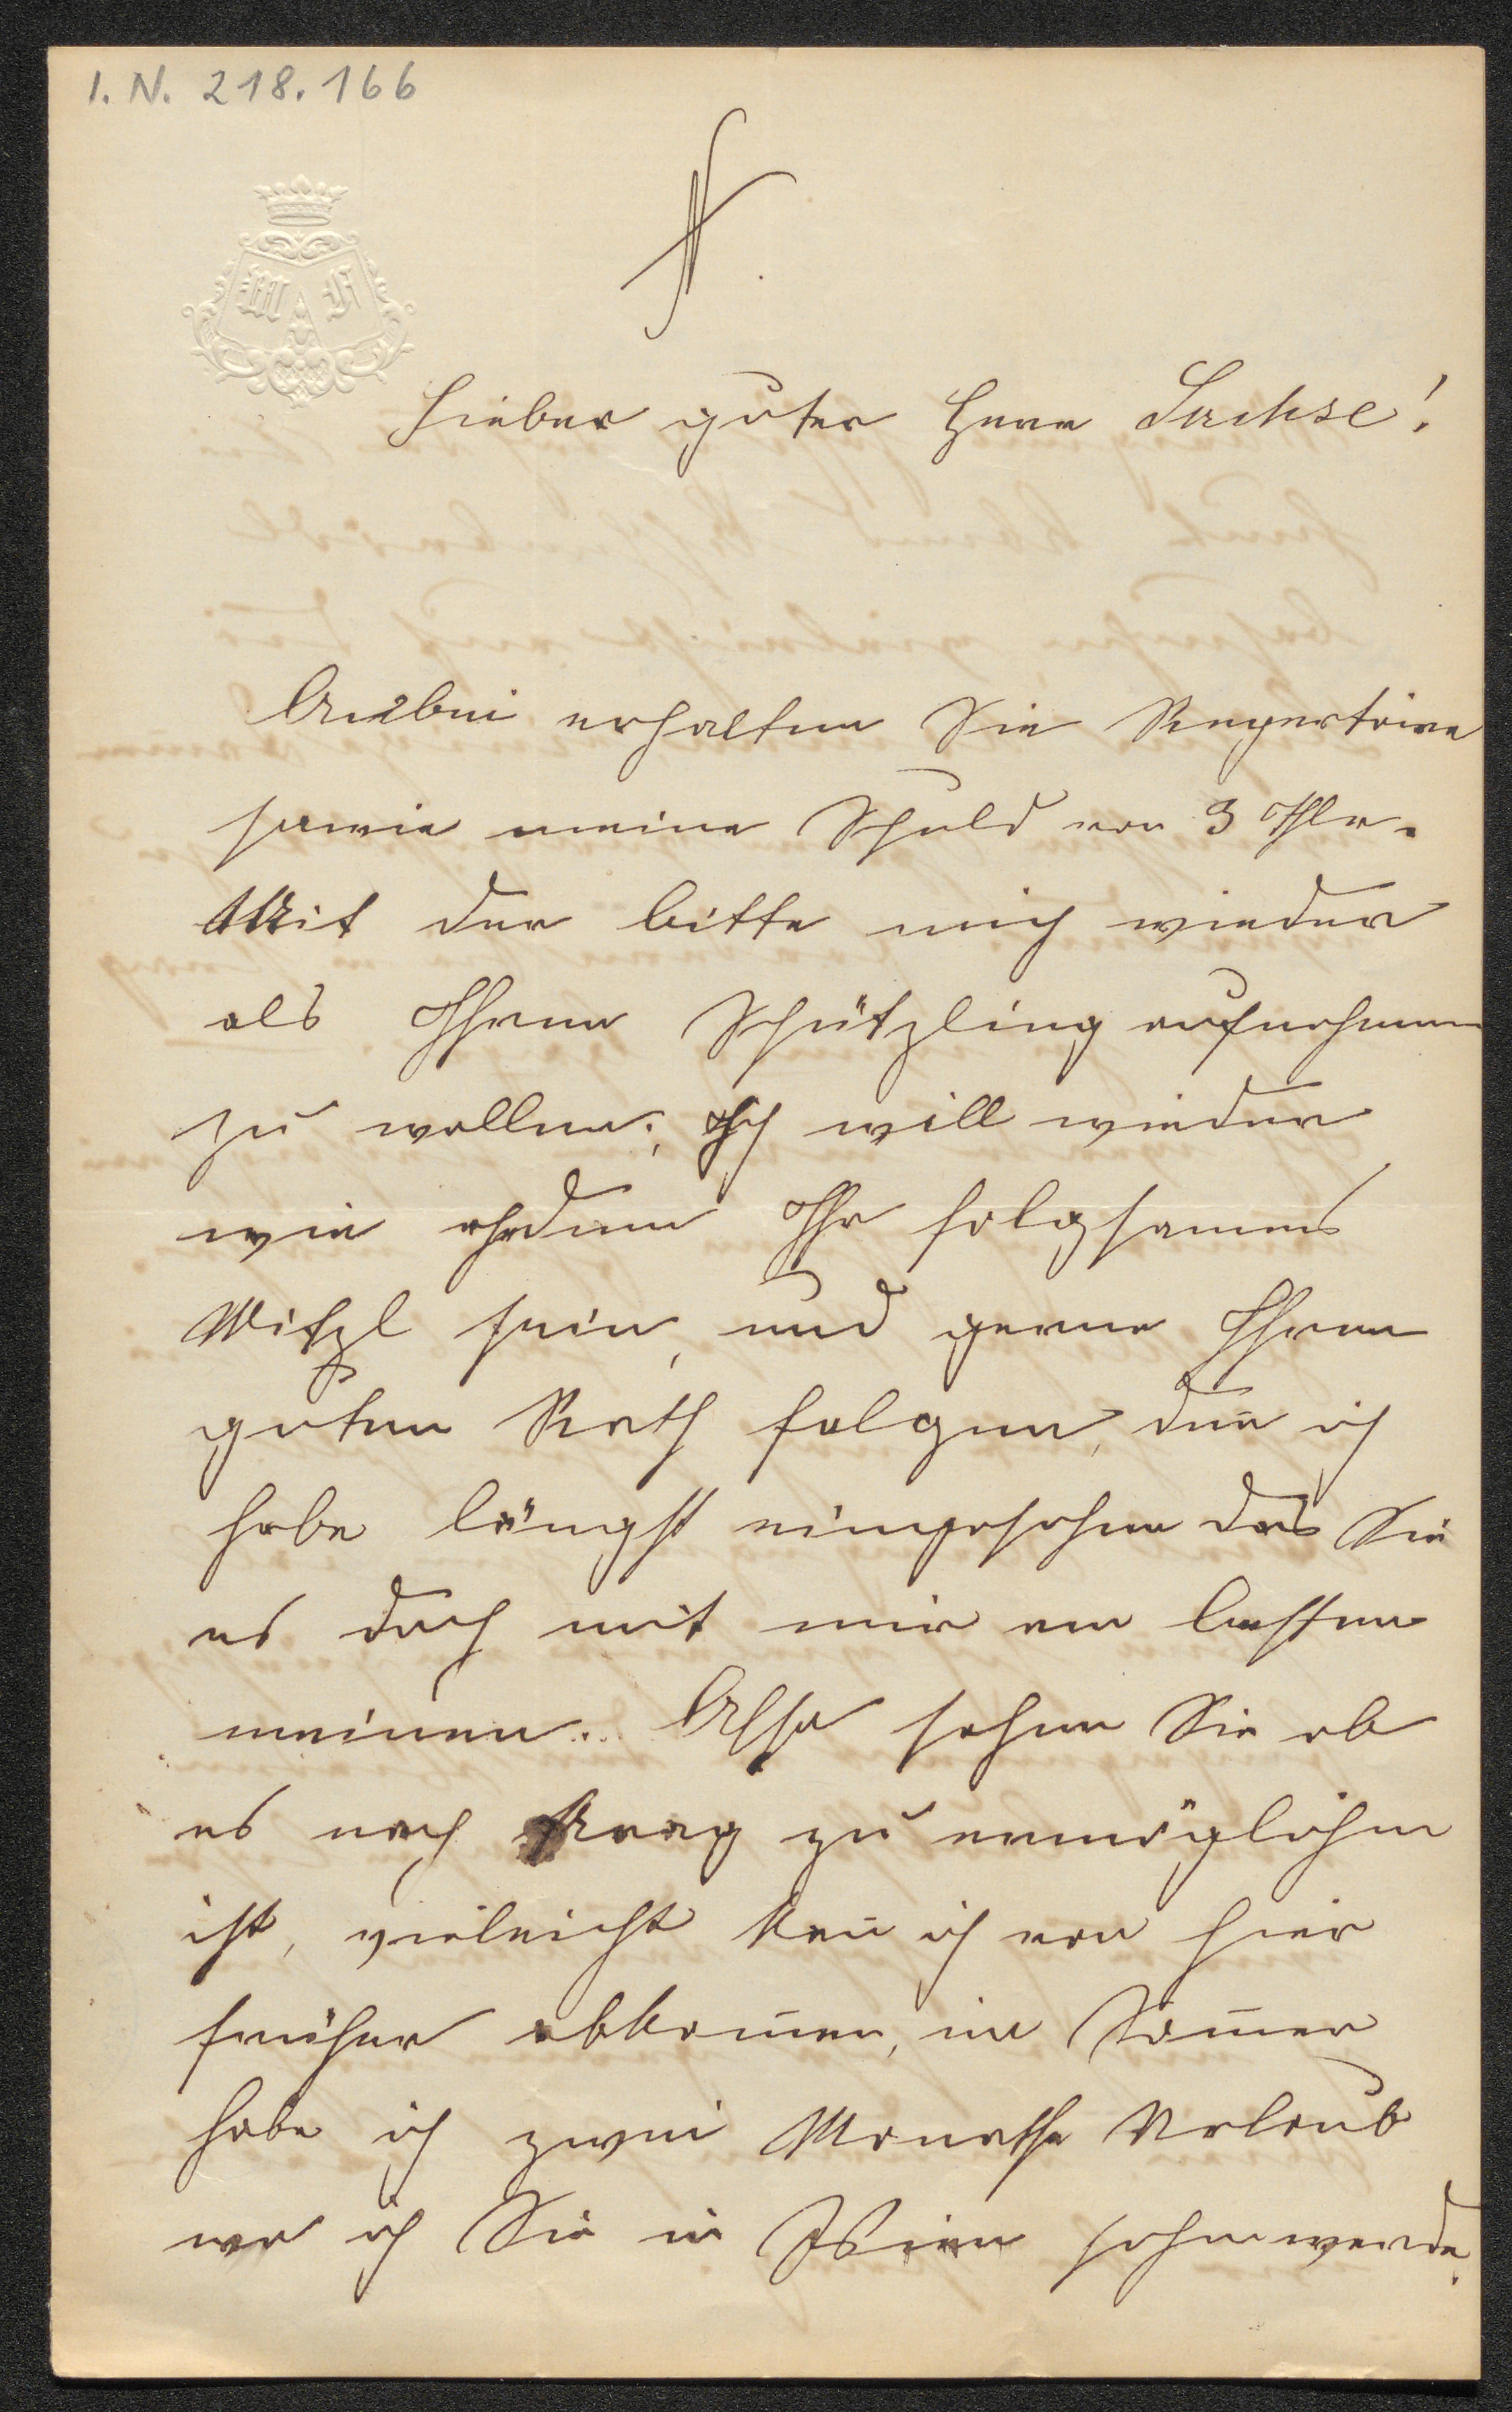 I. N. 218.166
Lieber guter Herr Sachse!
Anbei erhalten Sie Repertoire
sowie meine Schuld von 3 Thlr.
Mit der bitte mich wieder
als Ihren Schützling aufnehmen
zu wollen; Ich will wieder
wie ehedem Ihr folgsames
Mitzl sein, und gerne Ihren
guten Rath folgen, den̄ ich
habe längst eingesehen das Sie
es doch mit mir am besten
meinen. Also sehen Sie ob
es nach Prag zu ermöglichen
ist, vieleicht kan̄ ich von hier
früher abkom̄en, im Som̄er
habe ich zwei Monathe Urlaub
wo ich Sie in Wien sehen werde.